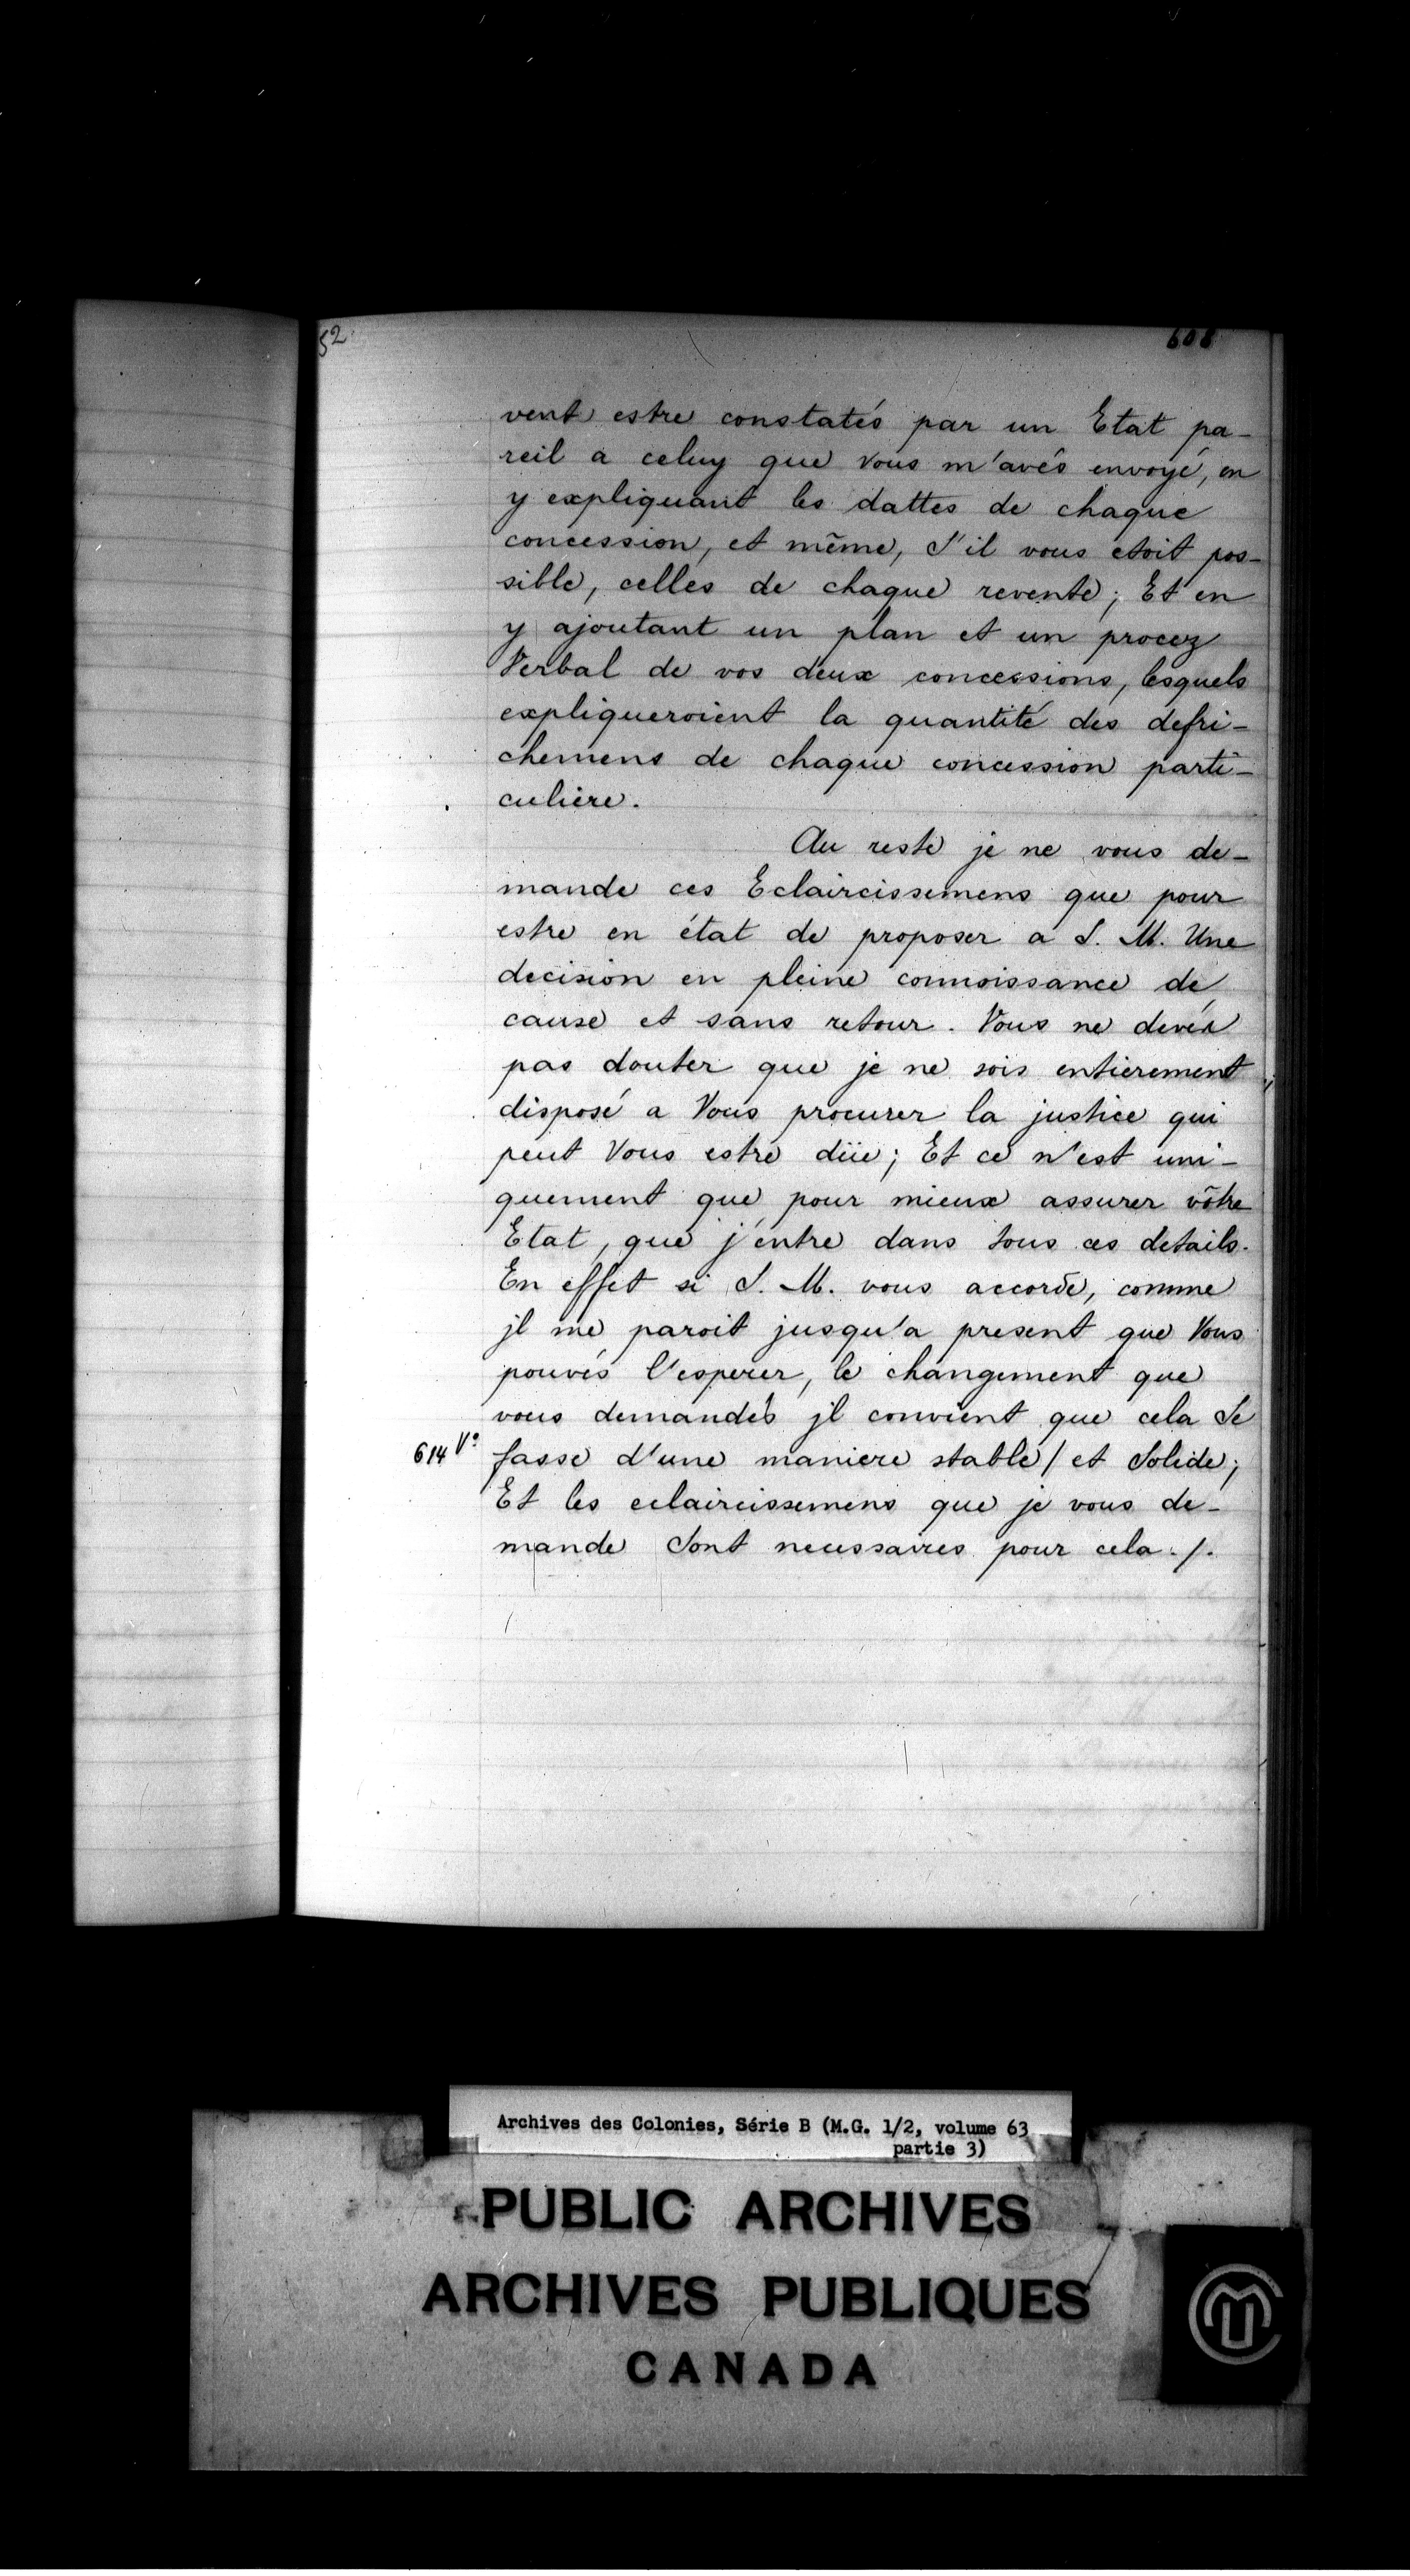 52
608
vent estre constatés par un Etat pa-
reil a celuy que Vous m'avés envoyé, en
y expliquant les dattes de chaque
concession, et même, s'il vous etoit pos-
sible, celles de chaque revente; Et en
y ajoutant un plan et un procez
Verbal de vos deux concessions, lesquels
expliqueroient la quantité des defri-
chemens de chaque concession parti-
culiere.
Au reste je ne vous de-
mande ces Eclaircissemens que pour
estre en état de proposer a S. M. Une
decision en pleine connoissance de
cause et sans retour. Vous ne devés
pas douter que je ne sois entierement
disposé a Vous procurer la justice qui
peut Vous estre düe; Et ce n'est uni-
quement que pour mieux assurer vôtre
Etat, que j'entre dans tous ces details.
En effet si S. M. vous accorde, comme
jl me paroit jusqu'a present que Vous
pouvés l'esperer, le changement que
vous demandés jl convient que cela Se
614 Vº fasse d'une maniere stable / et Solide;
Et les eclaircissemens que je vous de-
mande Sont necessaires pour cela ./.
Archives des Colonies, Série B (M.G. 1/2, volume 63
partie 3)
PUBLIC ARCHIVES
ARCHIVES PUBLIQUES
CANADA